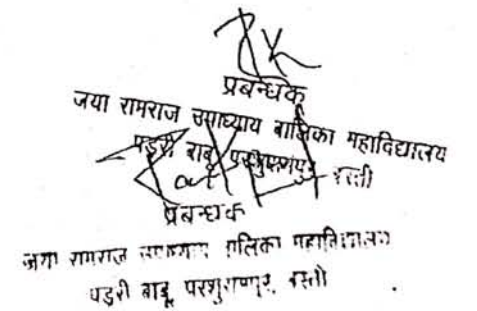 प्रबन्धक
जया रामराज उपाध्याय बालिका महाविद्यालय
पड़री बाबू परशुरामपुर बस्ती
प्रबन्धक
जया रामराज उपाध्याय बालिका महाविद्यालय
पड़री बाबू परशुरामपुर, बस्ती